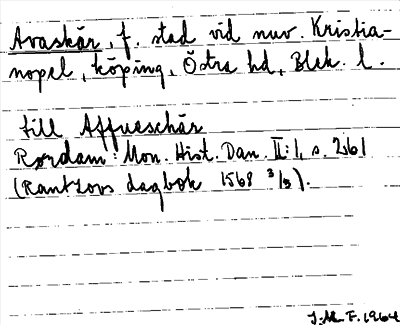 Avaskär, f. stad vid nuv. Kristia-
nopel, köping, Östra hd, Blek. l.
till Affueschär
Rørdam: Mon. Hist. Dan. II:1, s. 261
(Rantzovs dagbok 1568 3/3).
J.M.F. 1964